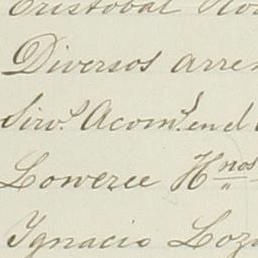 Cristobal
Diversos arre
Sirv.s Acom.s en el
Loweree Hnos
Ignacio Loz